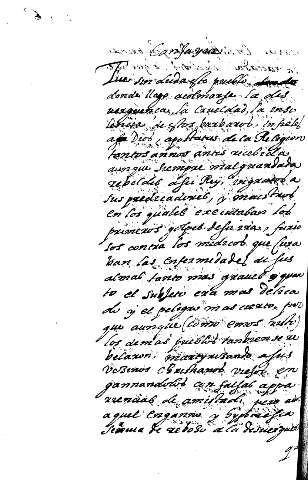 Canjayar
Fue sin duda este pueblo
donde llego a colmarse la des
verguenza, la crueldad, la inso
lencia de estos barbaros, infieles
a Dios, apostatas de la Religion
tantos años antes recibida
aunque siempre mal guardada
rebeldes a su Rey, ingratos a
sus predicadores, y maestros
en los quales executaban los
primeros golpes de su ira, furio
sos contra los medicos que cura
van las enfermedades de sus
almas tanto mas graves y quan
to el sujeto era mas delica
do y el peligro mas cierto, por
que aunque (como emos visto)
los demas pueblos tambien se re
belaron martyrizando a sus
vezinos christianos viejos en
gannandolos con falsas appa
riencias de amistad, pero
aquel enganno y hypocresia
de rebozo a la desverguen